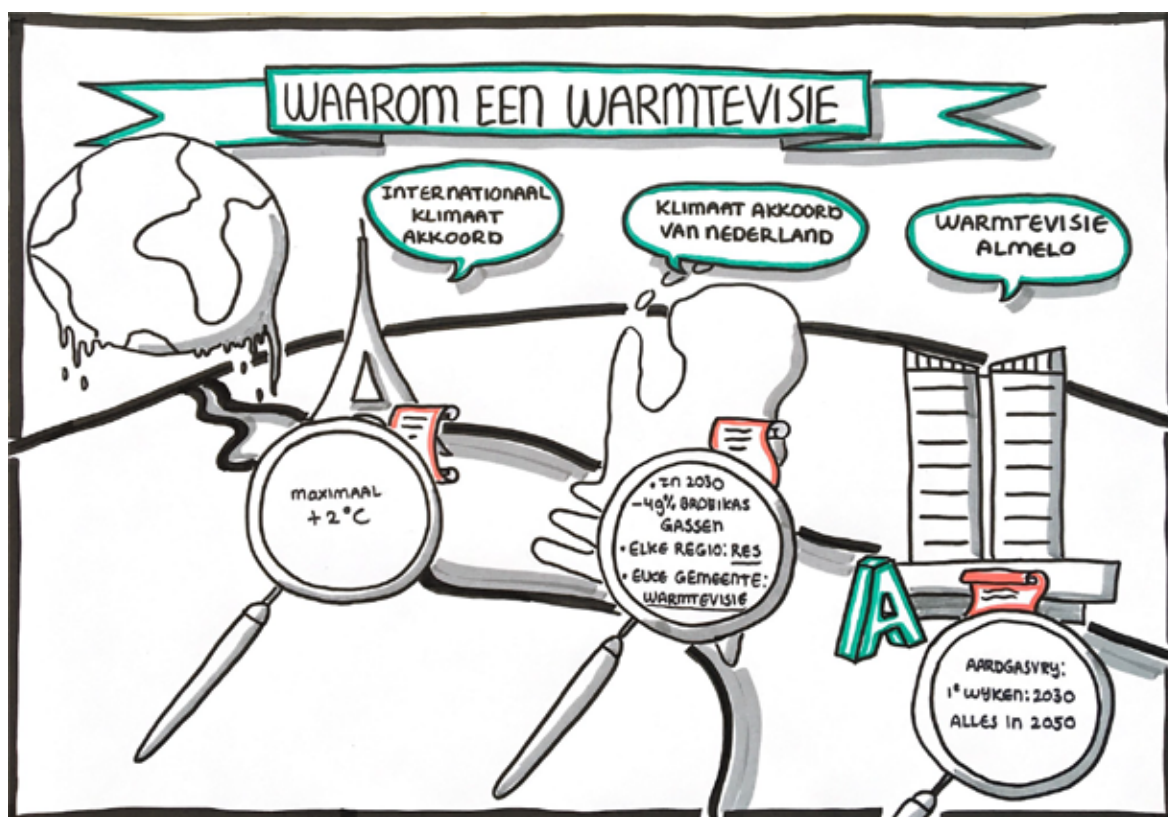 WAAROM EEN WARMTEVISIE
INTERNATIONAAL
KLIMAAT
AKKOORD
KLIMAAT AKKOORD
VAN NEDERLAND
WARMTEVISIE
ALMELO
MAXIMAAL
+2°C
• IN 2030
-49% BROEIKAS
GASSEN
• ELKE REGIO: RES
• ELKE GEMEENTE:
WARMTEVISIE
A
AARDGASVRY:
1e WYKEN: 2030
ALLES IN 2050